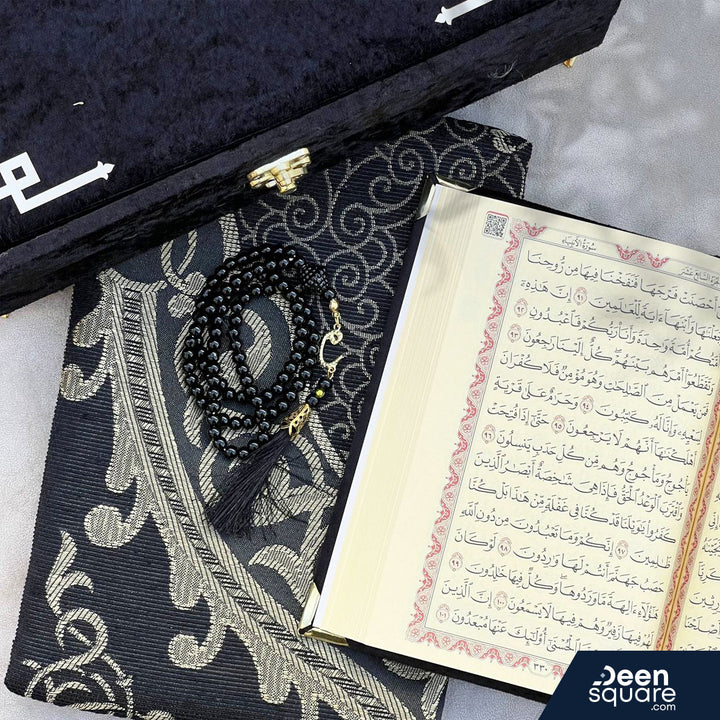 سُورَةُ الأَنبِيَاء
السَّابِعَ عَشَرَ
أَحْصَنَتْ فَرْجَهَا فَنَفَخْنَا فِيهَا مِن رُّوحِنَا
وَٱبْنَهَآ ءَايَةً لِّلْعَٰلَمِينَ ٩١ إِنَّ هَٰذِهِۦٓ
أُمَّةً وَٰحِدَةً وَأَنَا۠ رَبُّكُمْ فَٱعْبُدُونِ ٩٢
وَتَقَطَّعُوٓا۟ أَمْرَهُم بَيْنَهُمْ كُلٌّ إِلَيْنَا رَٰجِعُونَ ٩٣
فَمَن يَعْمَلْ مِنَ ٱلصَّٰلِحَٰتِ وَهُوَ مُؤْمِنٌ فَلَا كُفْرَانَ
لِسَعْيِهِۦ وَإِنَّا لَهُۥ كَٰتِبُونَ ٩٤ وَحَرَٰمٌ عَلَىٰ قَرْيَةٍ
أَهْلَكْنَٰهَآ أَنَّهُمْ لَا يَرْجِعُونَ ٩٥ حَتَّىٰٓ إِذَا فُتِحَتْ
يَأْجُوجُ وَمَأْجُوجُ وَهُم مِّن كُلِّ حَدَبٍ يَنسِلُونَ ٩٦
وَٱقْتَرَبَ ٱلْوَعْدُ ٱلْحَقُّ فَإِذَا هِىَ شَٰخِصَةٌ أَبْصَٰرُ ٱلَّذِينَ
كَفَرُوا۟ يَٰوَيْلَنَا قَدْ كُنَّا فِى غَفْلَةٍ مِّنْ هَٰذَا بَلْ كُنَّا
ظَٰلِمِينَ ٩٧ إِنَّكُمْ وَمَا تَعْبُدُونَ مِن دُونِ ٱللَّهِ
حَصَبُ جَهَنَّمَ أَنتُمْ لَهَا وَٰرِدُونَ ٩٨ لَوْ كَانَ
هَٰٓؤُلَآءِ ءَالِهَةً مَّا وَرَدُوهَا وَكُلٌّ فِيهَا خَٰلِدُونَ ٩٩
لَهُمْ فِيهَا زَفِيرٌ وَهُمْ فِيهَا لَا يَسْمَعُونَ ١٠٠ إِنَّ
ٱلْحُسْنَىٰٓ أُو۟لَٰٓئِكَ عَنْهَا مُبْعَدُونَ ١٠١
٣٣٠
Deen
square
.com